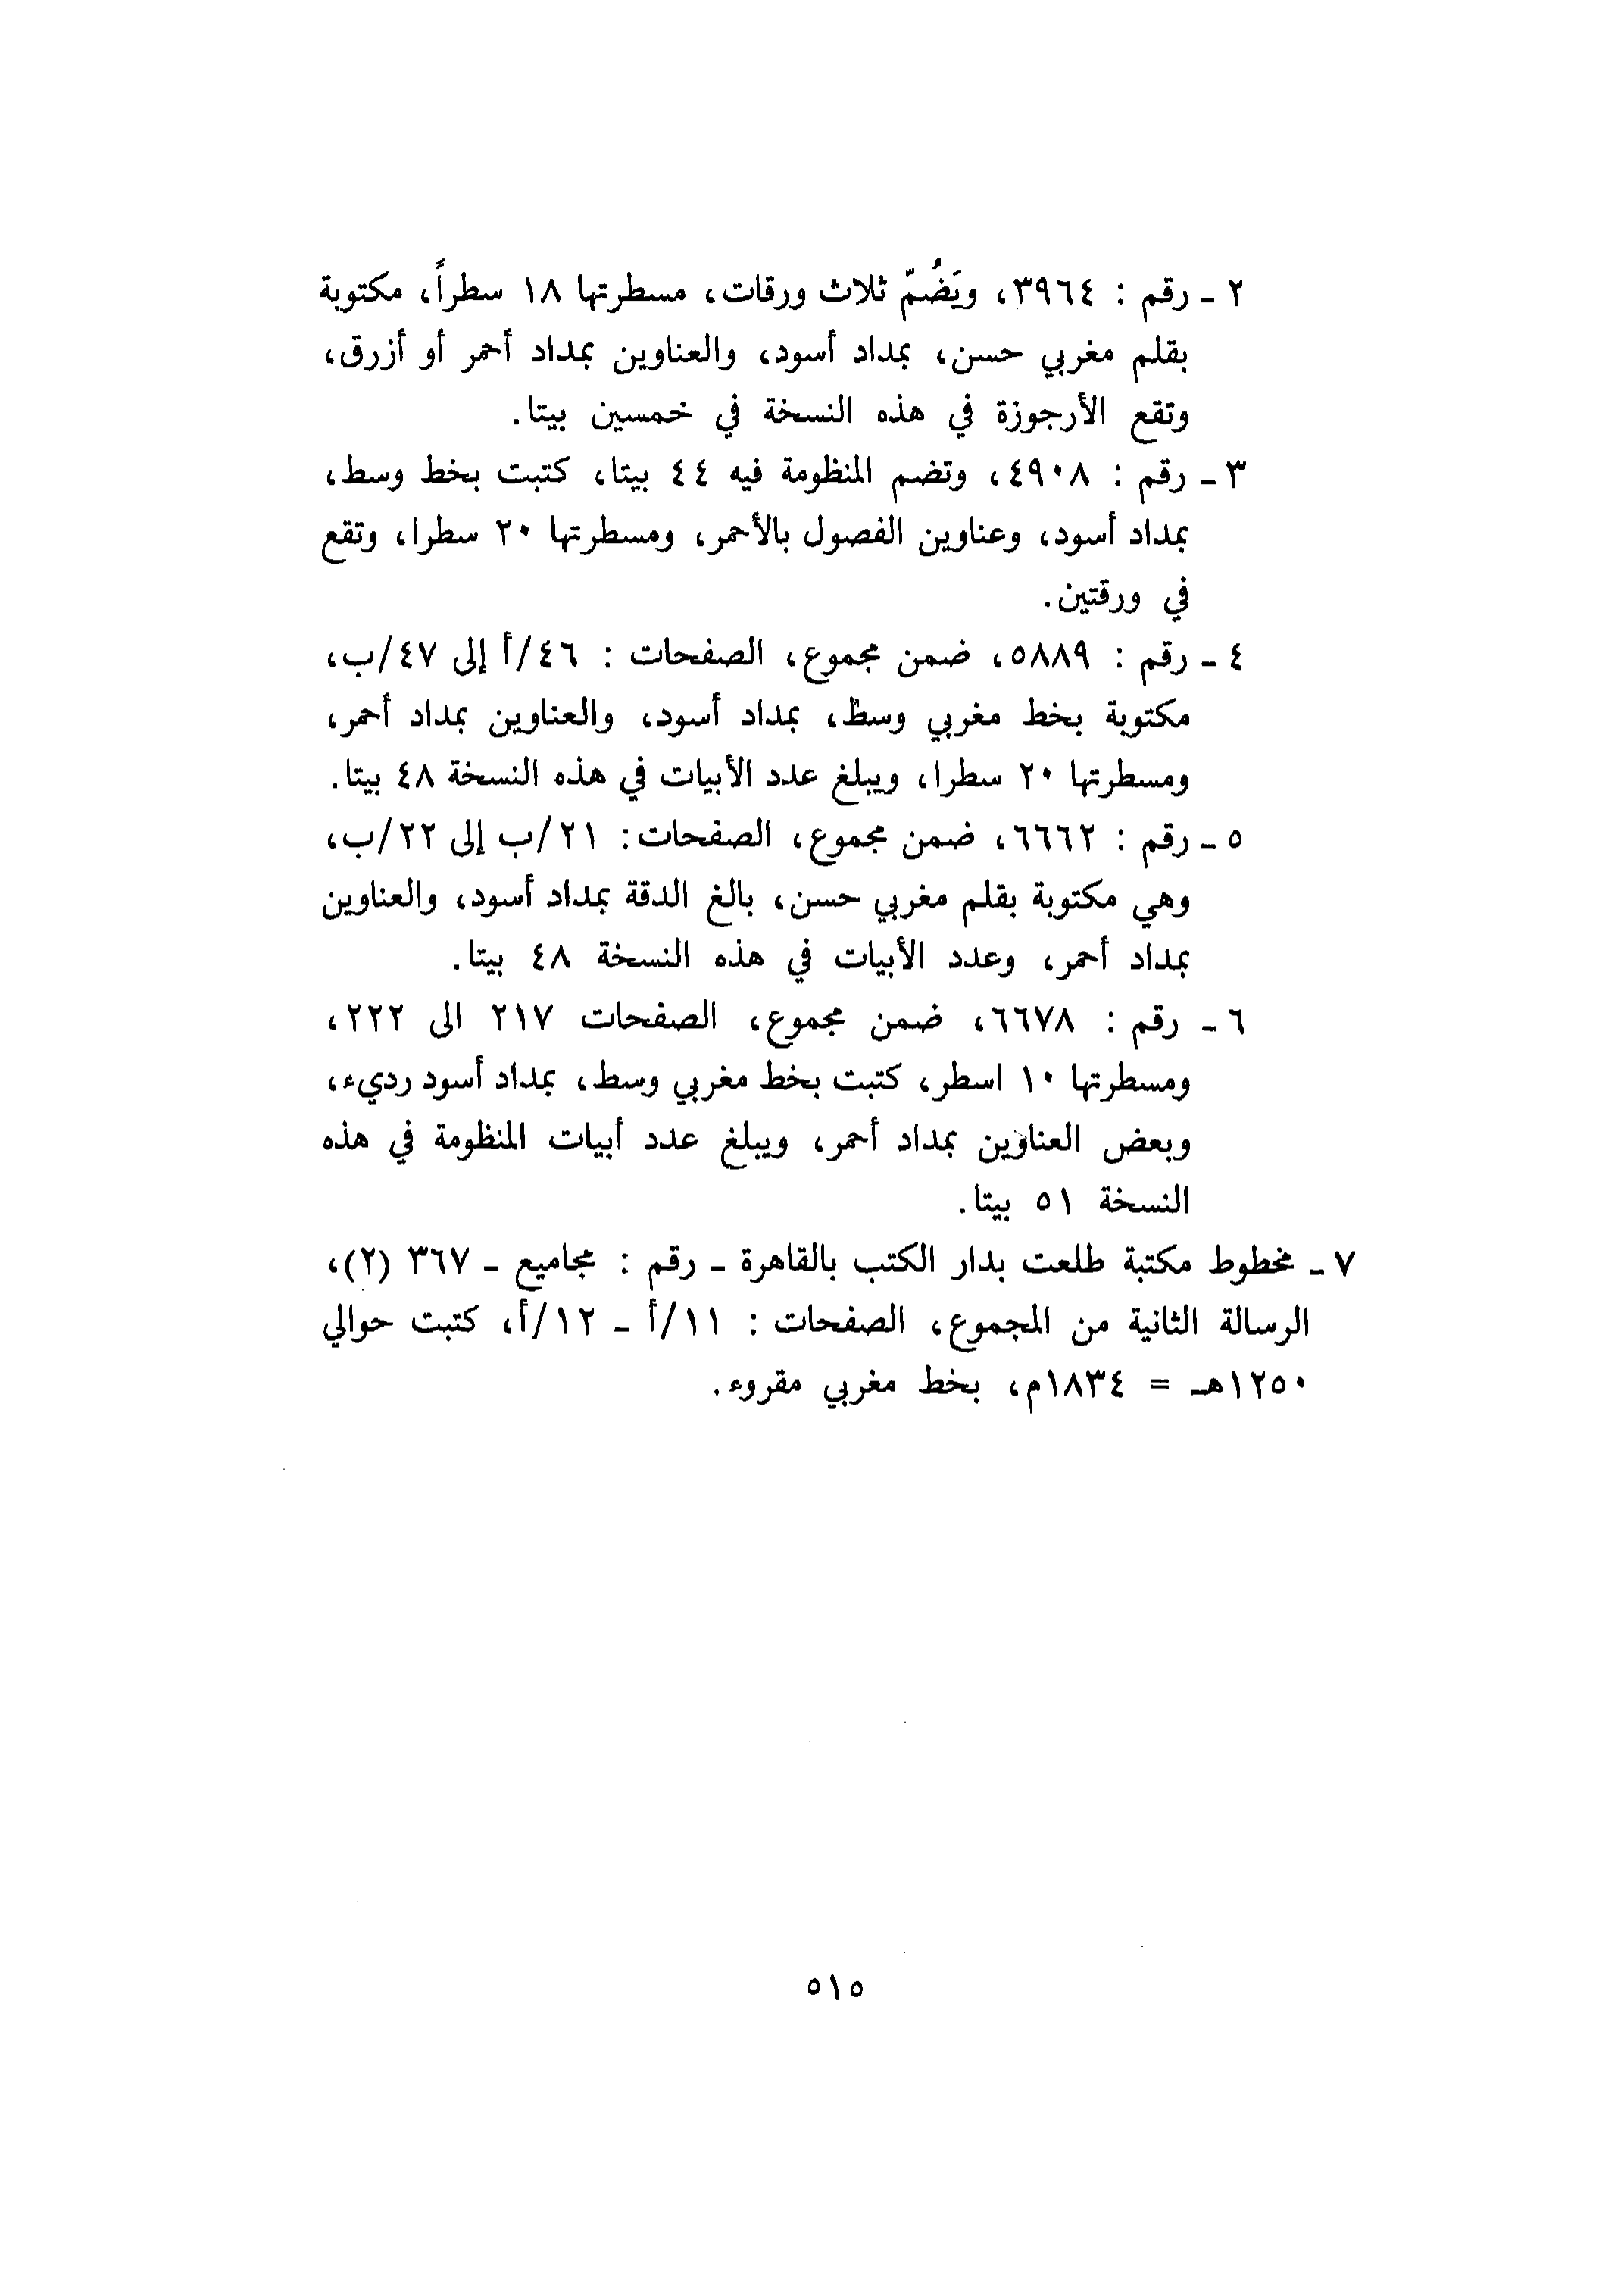 ٢ ـ رقم : ٣٩٦٤، ويَضُمّ ثلاث ورقات، مسطرتها ١٨ سطراً، مكتوبة
بقلم مغربي حسن، بمداد أسود، والعناوين بمداد أحمر أو أزرق،
وتقع الأرجوزة في هذه النسخة في خمسين بيتا.
٣ ـ رقم : ٤٩٠٨، وتضم المنظومة فيه ٤٤ بيتا، كتبت بخط وسط،
بمداد أسود، وعناوين الفصول بالأحمر، ومسطرتها ٢٠ سطرا، وتقع
في ورقتين.
٤ ـ رقم : ٥٨٨٩، ضمن مجموع، الصفحات : ٤٦/أ إلى ٤٧/ب،
مكتوبة بخط مغربي وسط، بمداد أسود، والعناوين بمداد أحمر،
ومسطرتها ٢٠ سطرا، ويبلغ عدد الأبيات في هذه النسخة ٤٨ بيتا.
٥ ـ رقم : ٦٦٦٢، ضمن مجموع، الصفحات: ٢١/ب إلى ٢٢/ب،
وهي مكتوبة بقلم مغربي حسن، بالغ الدقة بمداد أسود، والعناوين
بمداد أحمر، وعدد الأبيات في هذه النسخة ٤٨ بيتا.
٦ ـ رقم : ٦٦٧٨، ضمن مجموع، الصفحات ٢١٧ الى ٢٢٢،
ومسطرتها ١٠ اسطر، كتبت بخط مغربي وسط، بمداد أسود رديء،
وبعض العناوين بمداد أحمر، ويبلغ عدد أبيات المنظومة في هذه
النسخة ٥١ بيتا.
٧ ـ مخطوط مكتبة طلعت بدار الكتب بالقاهرة ـ رقم : مجاميع ـ ٣٦٧ (٢)،
الرسالة الثانية من المجموع، الصفحات : ١١/أ ـ ١٢/أ، كتبت حوالي
١٢٥٠هـ = ١٨٣٤م، بخط مغربي مقروء.
٥١٥